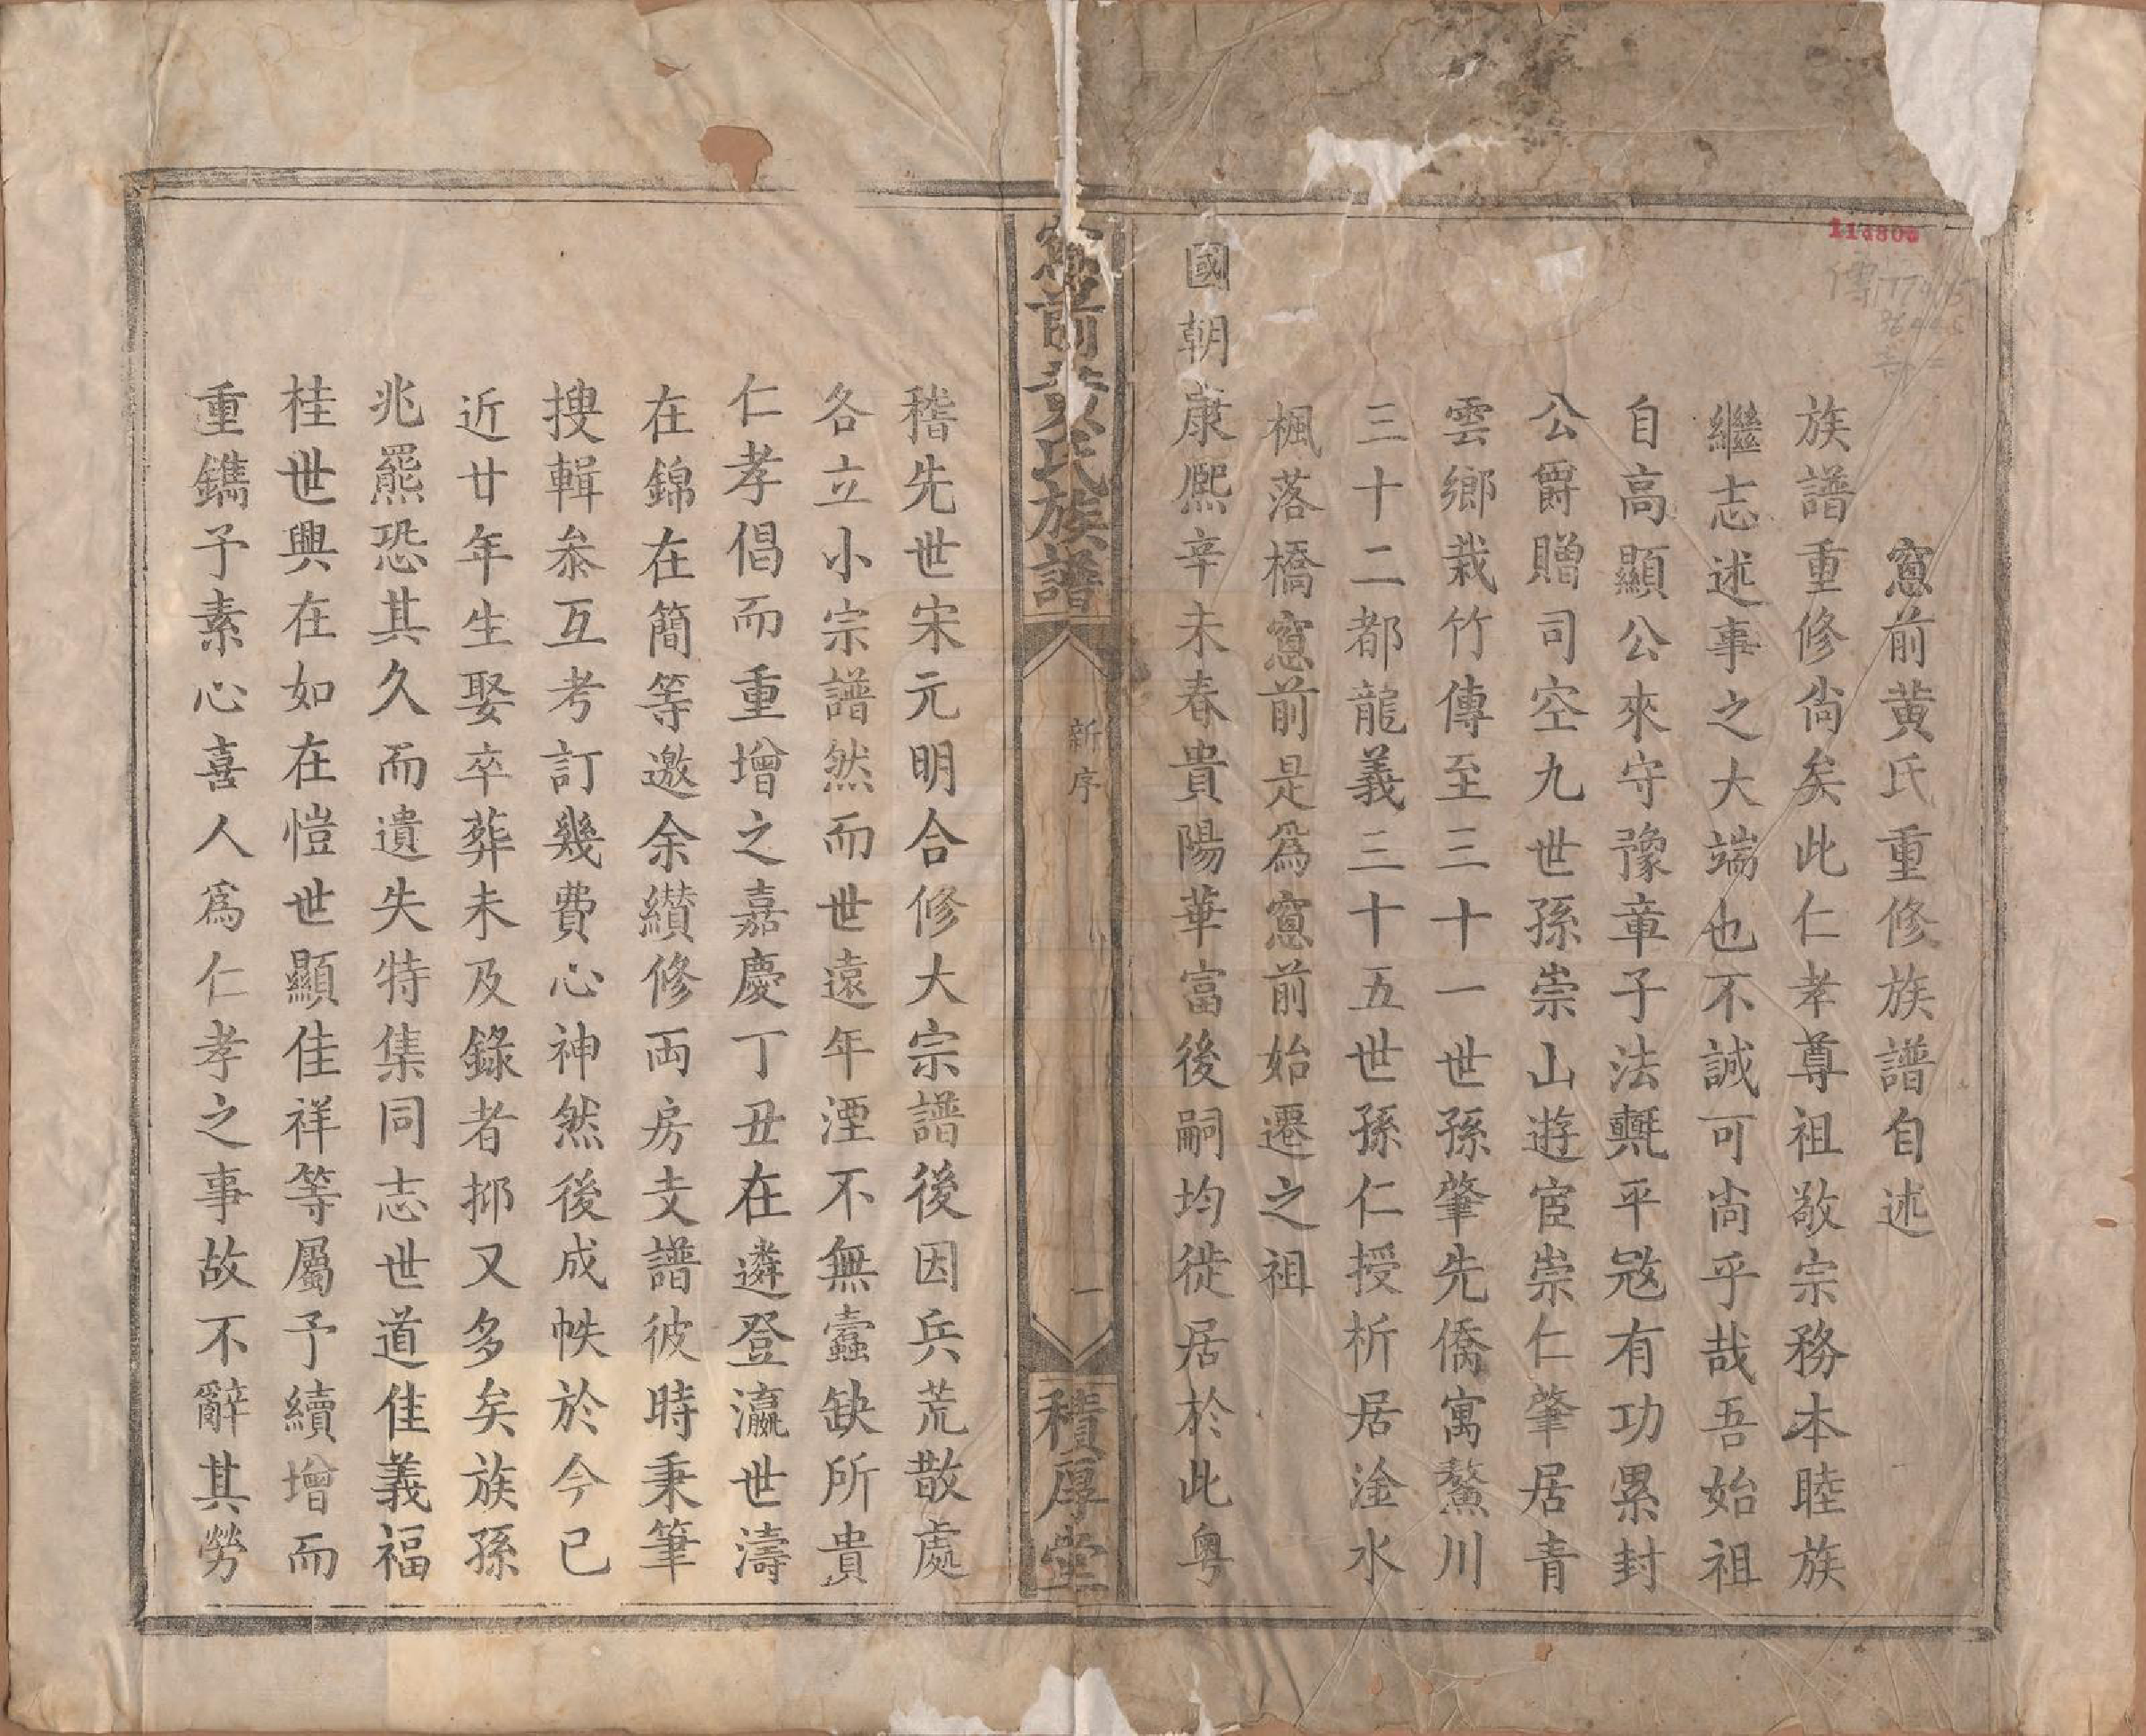 窻前黄氏重修族譜自述
族譜重修尙矣此仁孝尊祖敬宗務本睦族
繼志述事之大端也不誠可尙乎哉吾始祖
自高顯公來守豫章子法㲯平宼有功累封
公爵贈司空九世孫崇山遊宦崇仁肇居青
雲鄉栽竹傳至三十一世孫肇先僑寓鰲川
三十二都龍義三十五世孫仁授析居淦水
楓落橋窻前是爲窻前始遷之祖
國朝康熈辛未春貴陽華富後嗣均徙居於此粤
窻前黄氏族譜
新序
一
積厚堂
稽先世宋元明合修大宗譜後因兵荒散處
各立小宗譜然而世遠年湮不無蠹缺所貴
仁孝倡而重增之嘉慶丁丑在遴登瀛世濤
在錦在簡等邀余纉修両房支譜彼時秉筆
搜輯叅互考訂幾費心神然後成帙於今已
近廿年生娶卒葬未及錄者抑又多矣族孫
兆羆恐其久而遺失特集同志世道佳義福
桂世興在如在愷世顯佳祥等屬予續增而
重鐫予素心喜人爲仁孝之事故不辭其勞
114805